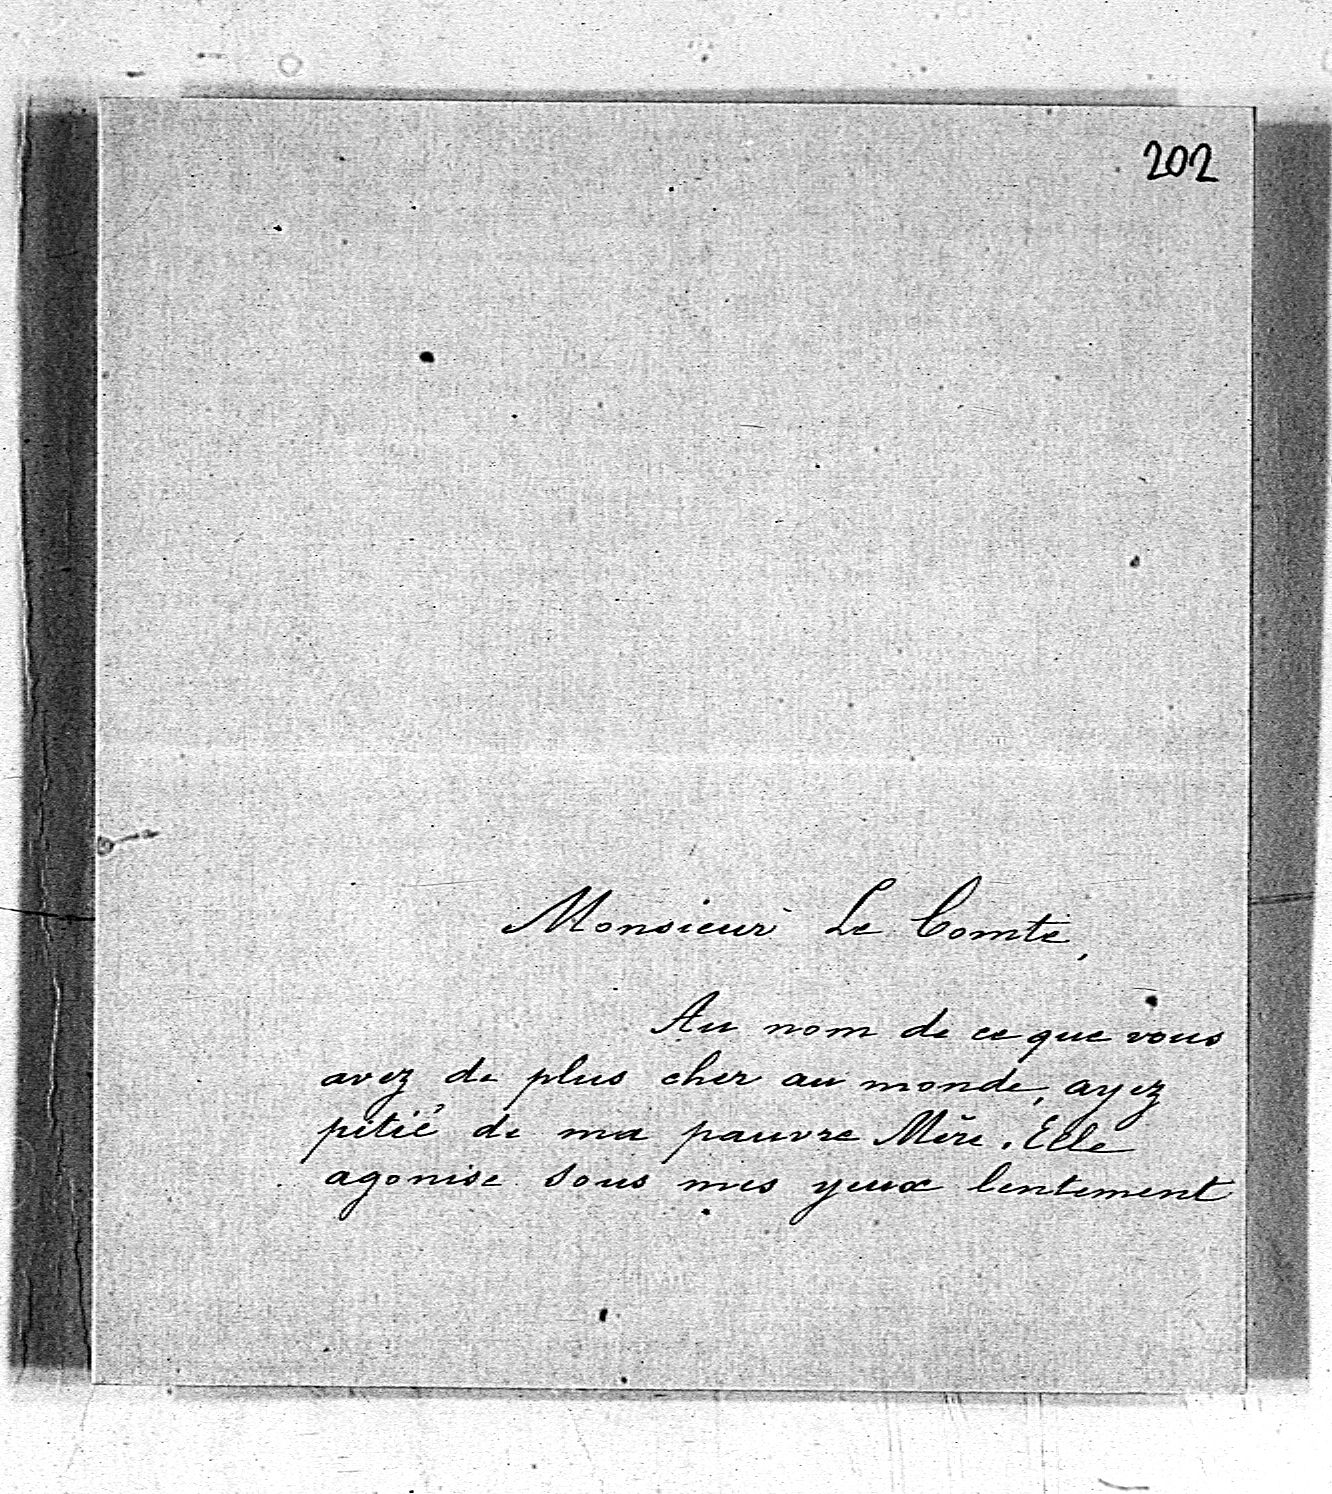 202
Monsieur Le Comte,
Au nom de ce que vous
avez de plus cher au monde, ayez
pitié de ma pauvre Mère. Elle
agonise sous mes yeux lentement